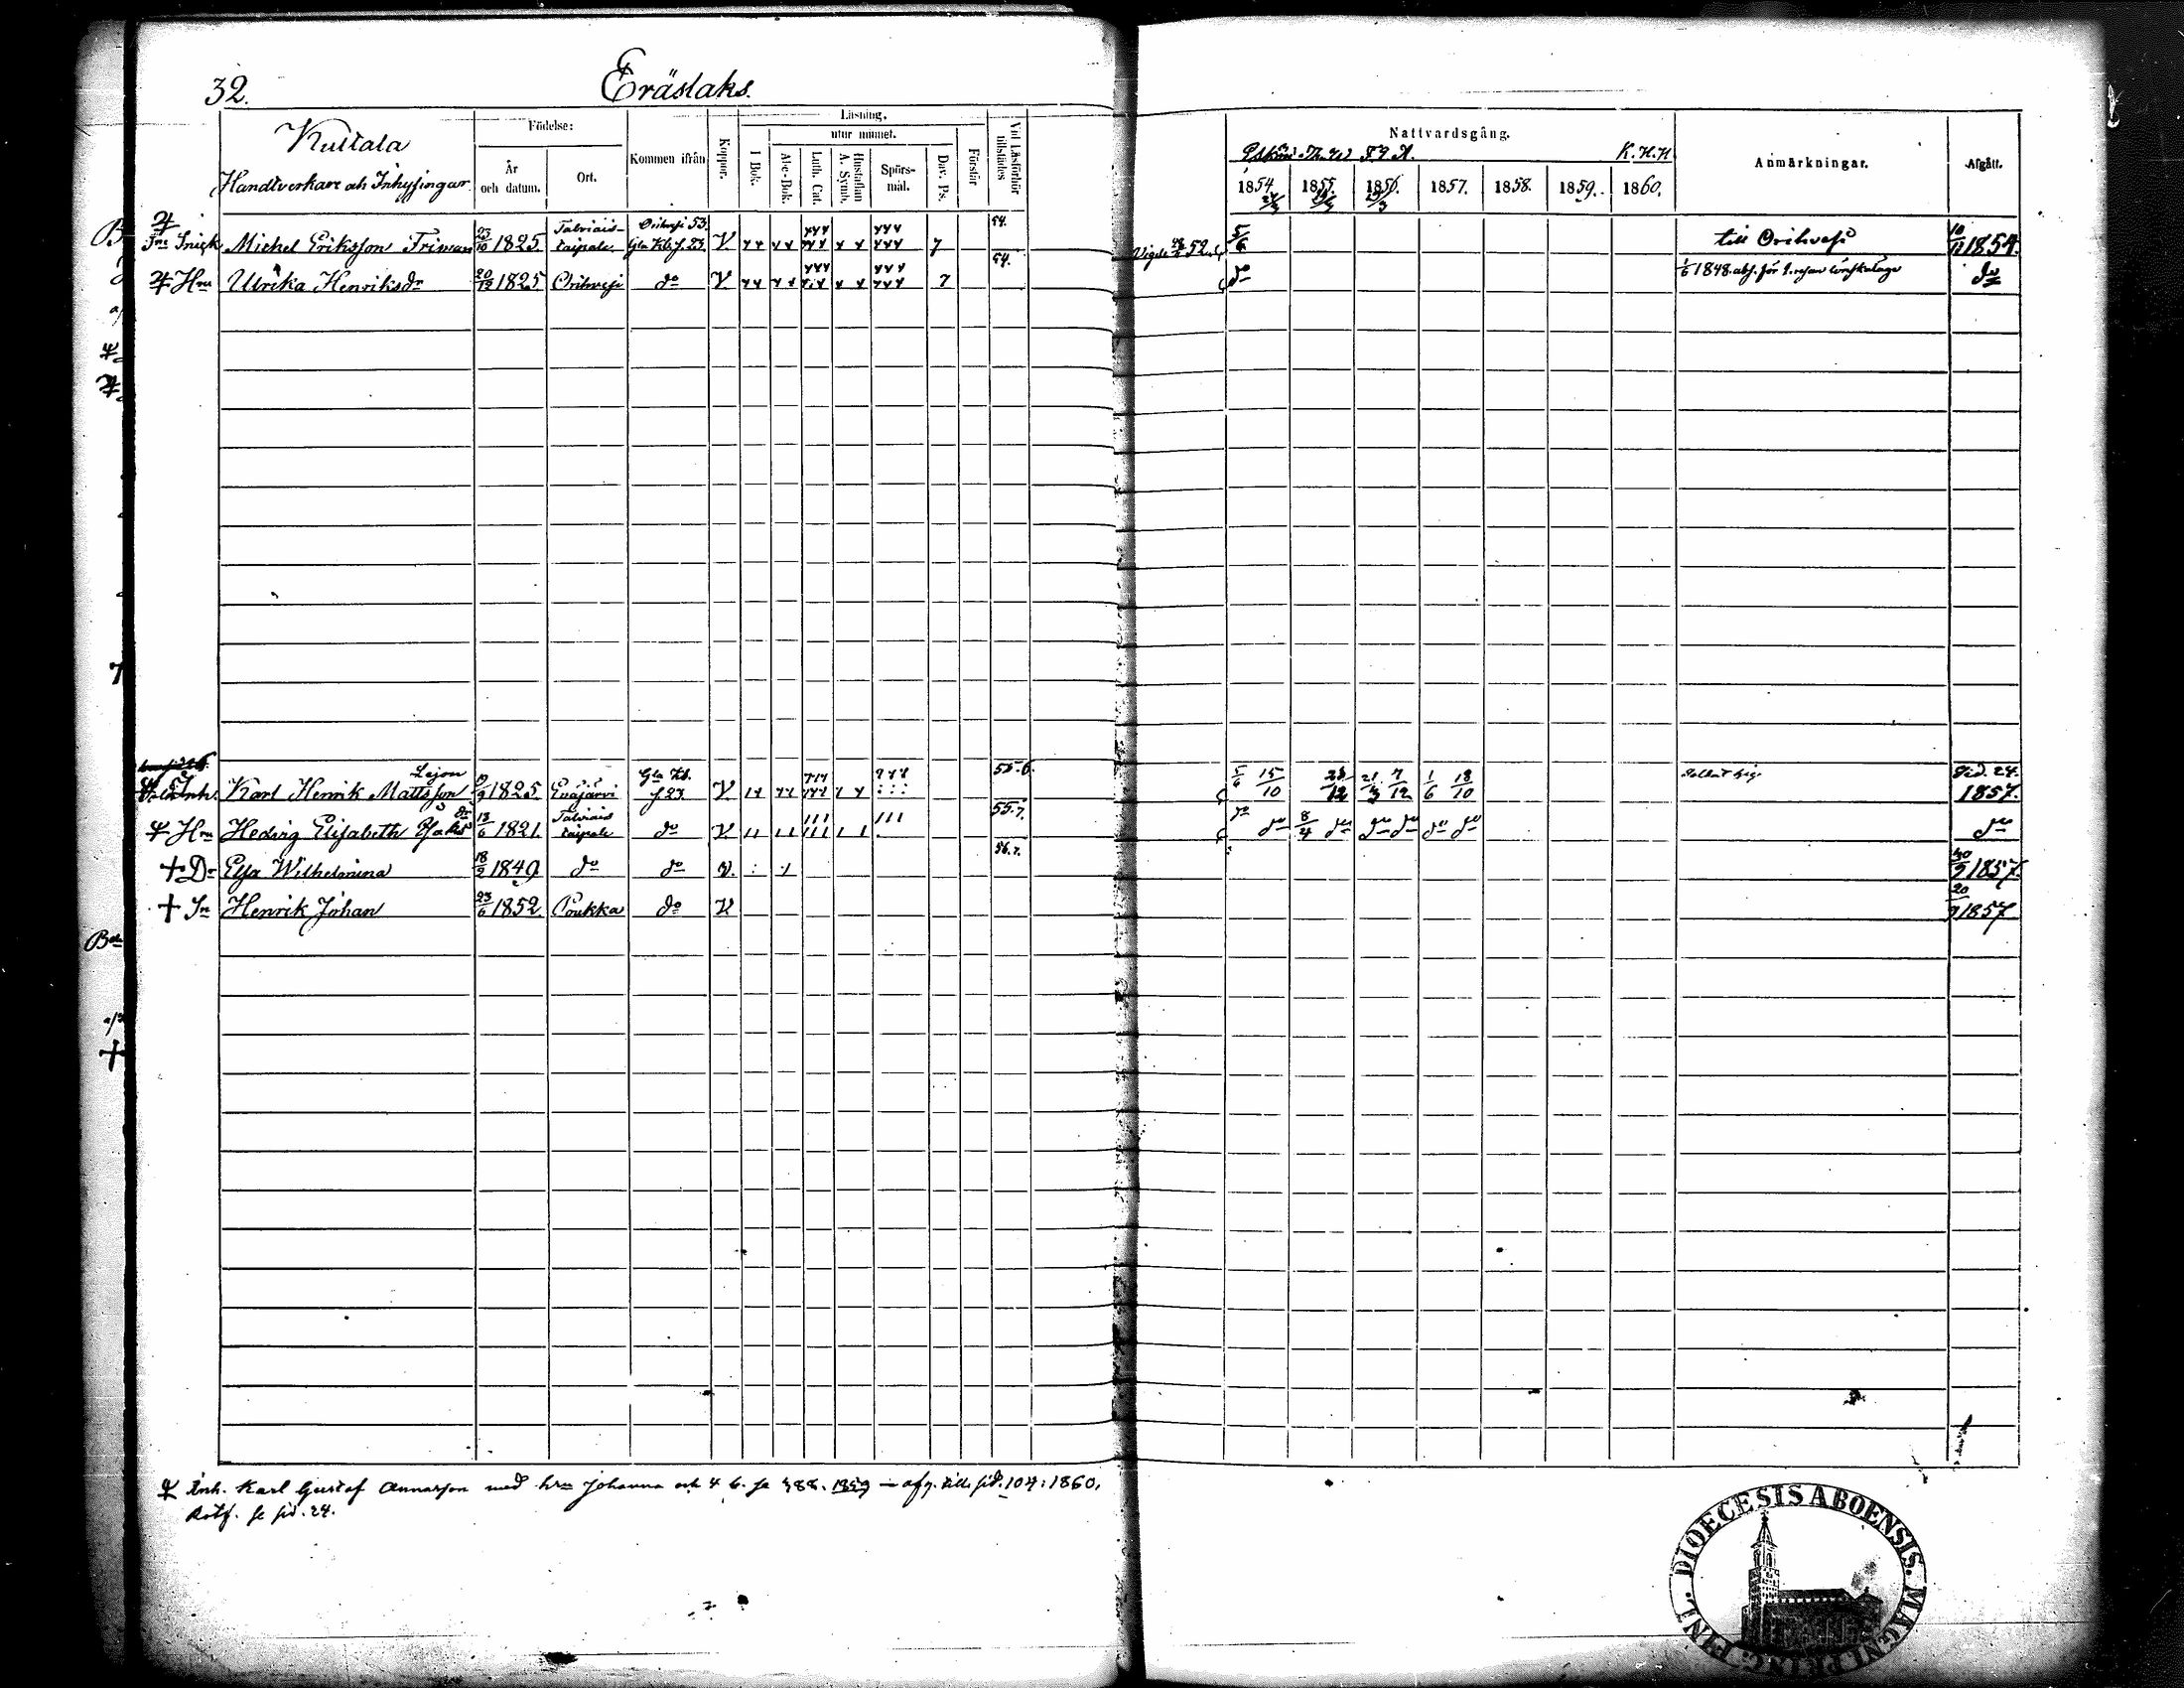 32. Eräslaks.
Kuttala
Handtverkare och Inhysingar
Födelse:
År och datum.
Ort.
Kommen ifrån
Koppor.
Läsning.
I Bok.
utur minnet.
Abc-Bok.
Luth. Cat.
Hustaflan A. Symb.
Spörs-mål.
Dav. Ps.
Förstår
Vid Läsförhör tillstädes
Nattvardsgång.
K. H. H.
1854. 1855. 1856. 1857. 1858. 1859. 1860.
Anmärkningar.
Afgått.
Michel Eriksson Friman 23/10 1825. Talviais-taipale Orihvesi 53. V 7 54. 5/6 till Orihvesi 1854.
Hru Ulrika Henriksdr 20/12 1825 Orihvesi do V 7 54. do 1/6 1848. do
Lejon
Karl Henrik Mattsson 1825. Eräjärvi V 55.6. 5/6 15/10 21/3 7/12 1/6 18/10 Sid. 24. 1857.
Hru Hedvig Elisabeth 13/6 1821. Talviais taipale do V 55.7. do do 8/4 do do do do do do
+ Dr Eva Wilhelmina 18/2 1849. do do V. 56.7. 1857.
+ Sn Henrik Johan 23/6 1852. Poukka do V 20/9 1857
Inh. Karl Gustaf Annasson med hru Johanna och 4 b. se 388. 1859 — afg. till sid. 104: 1860.
se sid. 24.
DIOECESIS ABOENSIS. MAGNI PRINC. FINL.